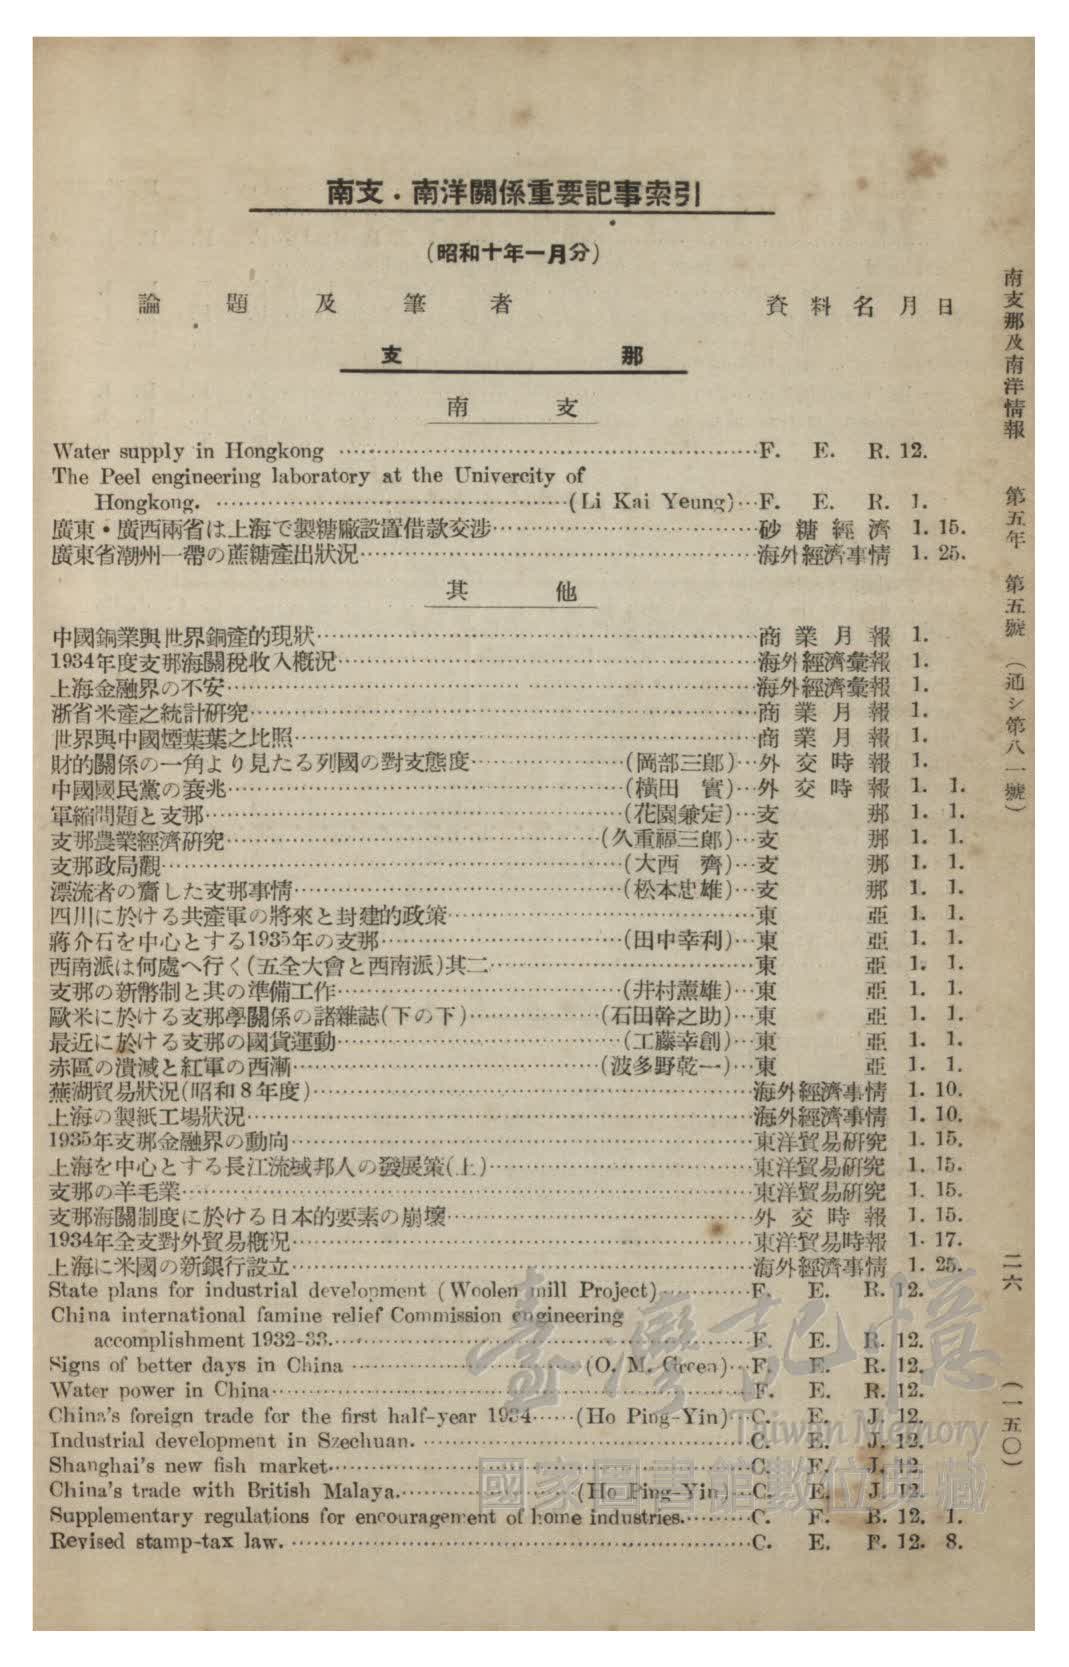 南支・南洋關係重要記事索引
(昭和十年一月分)
論題及筆者 資料名 月 日
支那
南支
Water supply in Hongkong ……F. E. R. 12.
The Peel engineering laboratory at the Univercity of
Hongkong. ……(Li Kai Yeung)…F. E. R. 1.
廣東・廣西兩省は上海で製糖廠設置借款交涉……砂糖經濟 1. 15.
廣東省潮州一帶の蔗糖產出狀況……海外經濟事情 1. 25.
其他
中國銅業與世界銅產的現狀……商業月報 1.
1934年度支那海關稅收入槪況……海外經濟彙報 1.
上海金融界の不安……海外經濟彙報 1.
浙省米產之統計硏究……商業月報 1.
世界與中國煙葉葉之比照……商業月報 1.
財的關係の一角より見たる列國の對支態度……(岡部三郞)…外交時報 1.
中國國民黨の衰兆……(橫田 實)…外交時報 1. 1.
軍縮問題と支那……(花園兼定)…支那 1. 1.
支那農業經濟硏究……(久重福三郞)…支那 1. 1.
支那政局觀……(大西 齊)…支那 1. 1.
漂流者の齎した支那事情……(松本忠雄)…支那 1. 1.
四川に於ける共產軍の將來と封建的政策……東亞 1. 1.
蔣介石を中心とする1935年の支那……(田中幸利)…東亞 1. 1.
西南派は何處へ行く(五全大會と西南派)其二……東亞 1. 1.
支那の新幣制と其の準備工作……(井村薰雄)…東亞 1. 1.
歐米に於ける支那學關係の諸雜誌(下の下)……(石田幹之助)…東亞 1. 1.
最近に於ける支那の國貨運動……(工藤幸創)…東亞 1. 1.
赤區の潰滅と紅軍の西漸……(波多野乾一)…東亞 1. 1.
蕪湖貿易狀況(昭和8年度)……海外經濟事情 1. 10.
上海の製紙工場狀況……海外經濟事情 1. 10.
1935年支那金融界の動向……東洋貿易硏究 1. 15.
上海を中心とする長江流域邦人の發展策(上)……東洋貿易硏究 1. 15.
支那の羊毛業……東洋貿易硏究 1. 15.
支那海關制度に於ける日本的要素の崩壞……外交時報 1. 15.
1934年全支對外貿易槪況……東洋貿易時報 1. 17.
上海に米國の新銀行設立……海外經濟事情 1. 25.
State plans for industrial development (Woolen mill Project)……F. E. R. 12.
China international famine relief Commission engineering
accomplishment 1932-33.……F. E. R. 12.
Signs of better days in China ……(O. M. Green)…F. E. R. 12.
Water power in China……F. E. R. 12.
China's foreign trade for the first half-year 1934……(Ho Ping-Yin)…C. E. J. 12.
Industrial development in Szechuan. ……C. E. J. 12.
Shanghai's new fish market……C. E. J. 12.
China's trade with British Malaya.……(Ho Ping-Yin)…C. E. J. 12.
Supplementary regulations for encouragement of home industries.……C. E. B. 12. 1.
Revised stamp-tax law. ……C. E. B. 12. 8.
南支那及南洋情報 第五年 第五號 (通シ第八一號)
二六
(一五〇)
臺灣記憶
Taiwan Memory
國家圖書館數位典藏